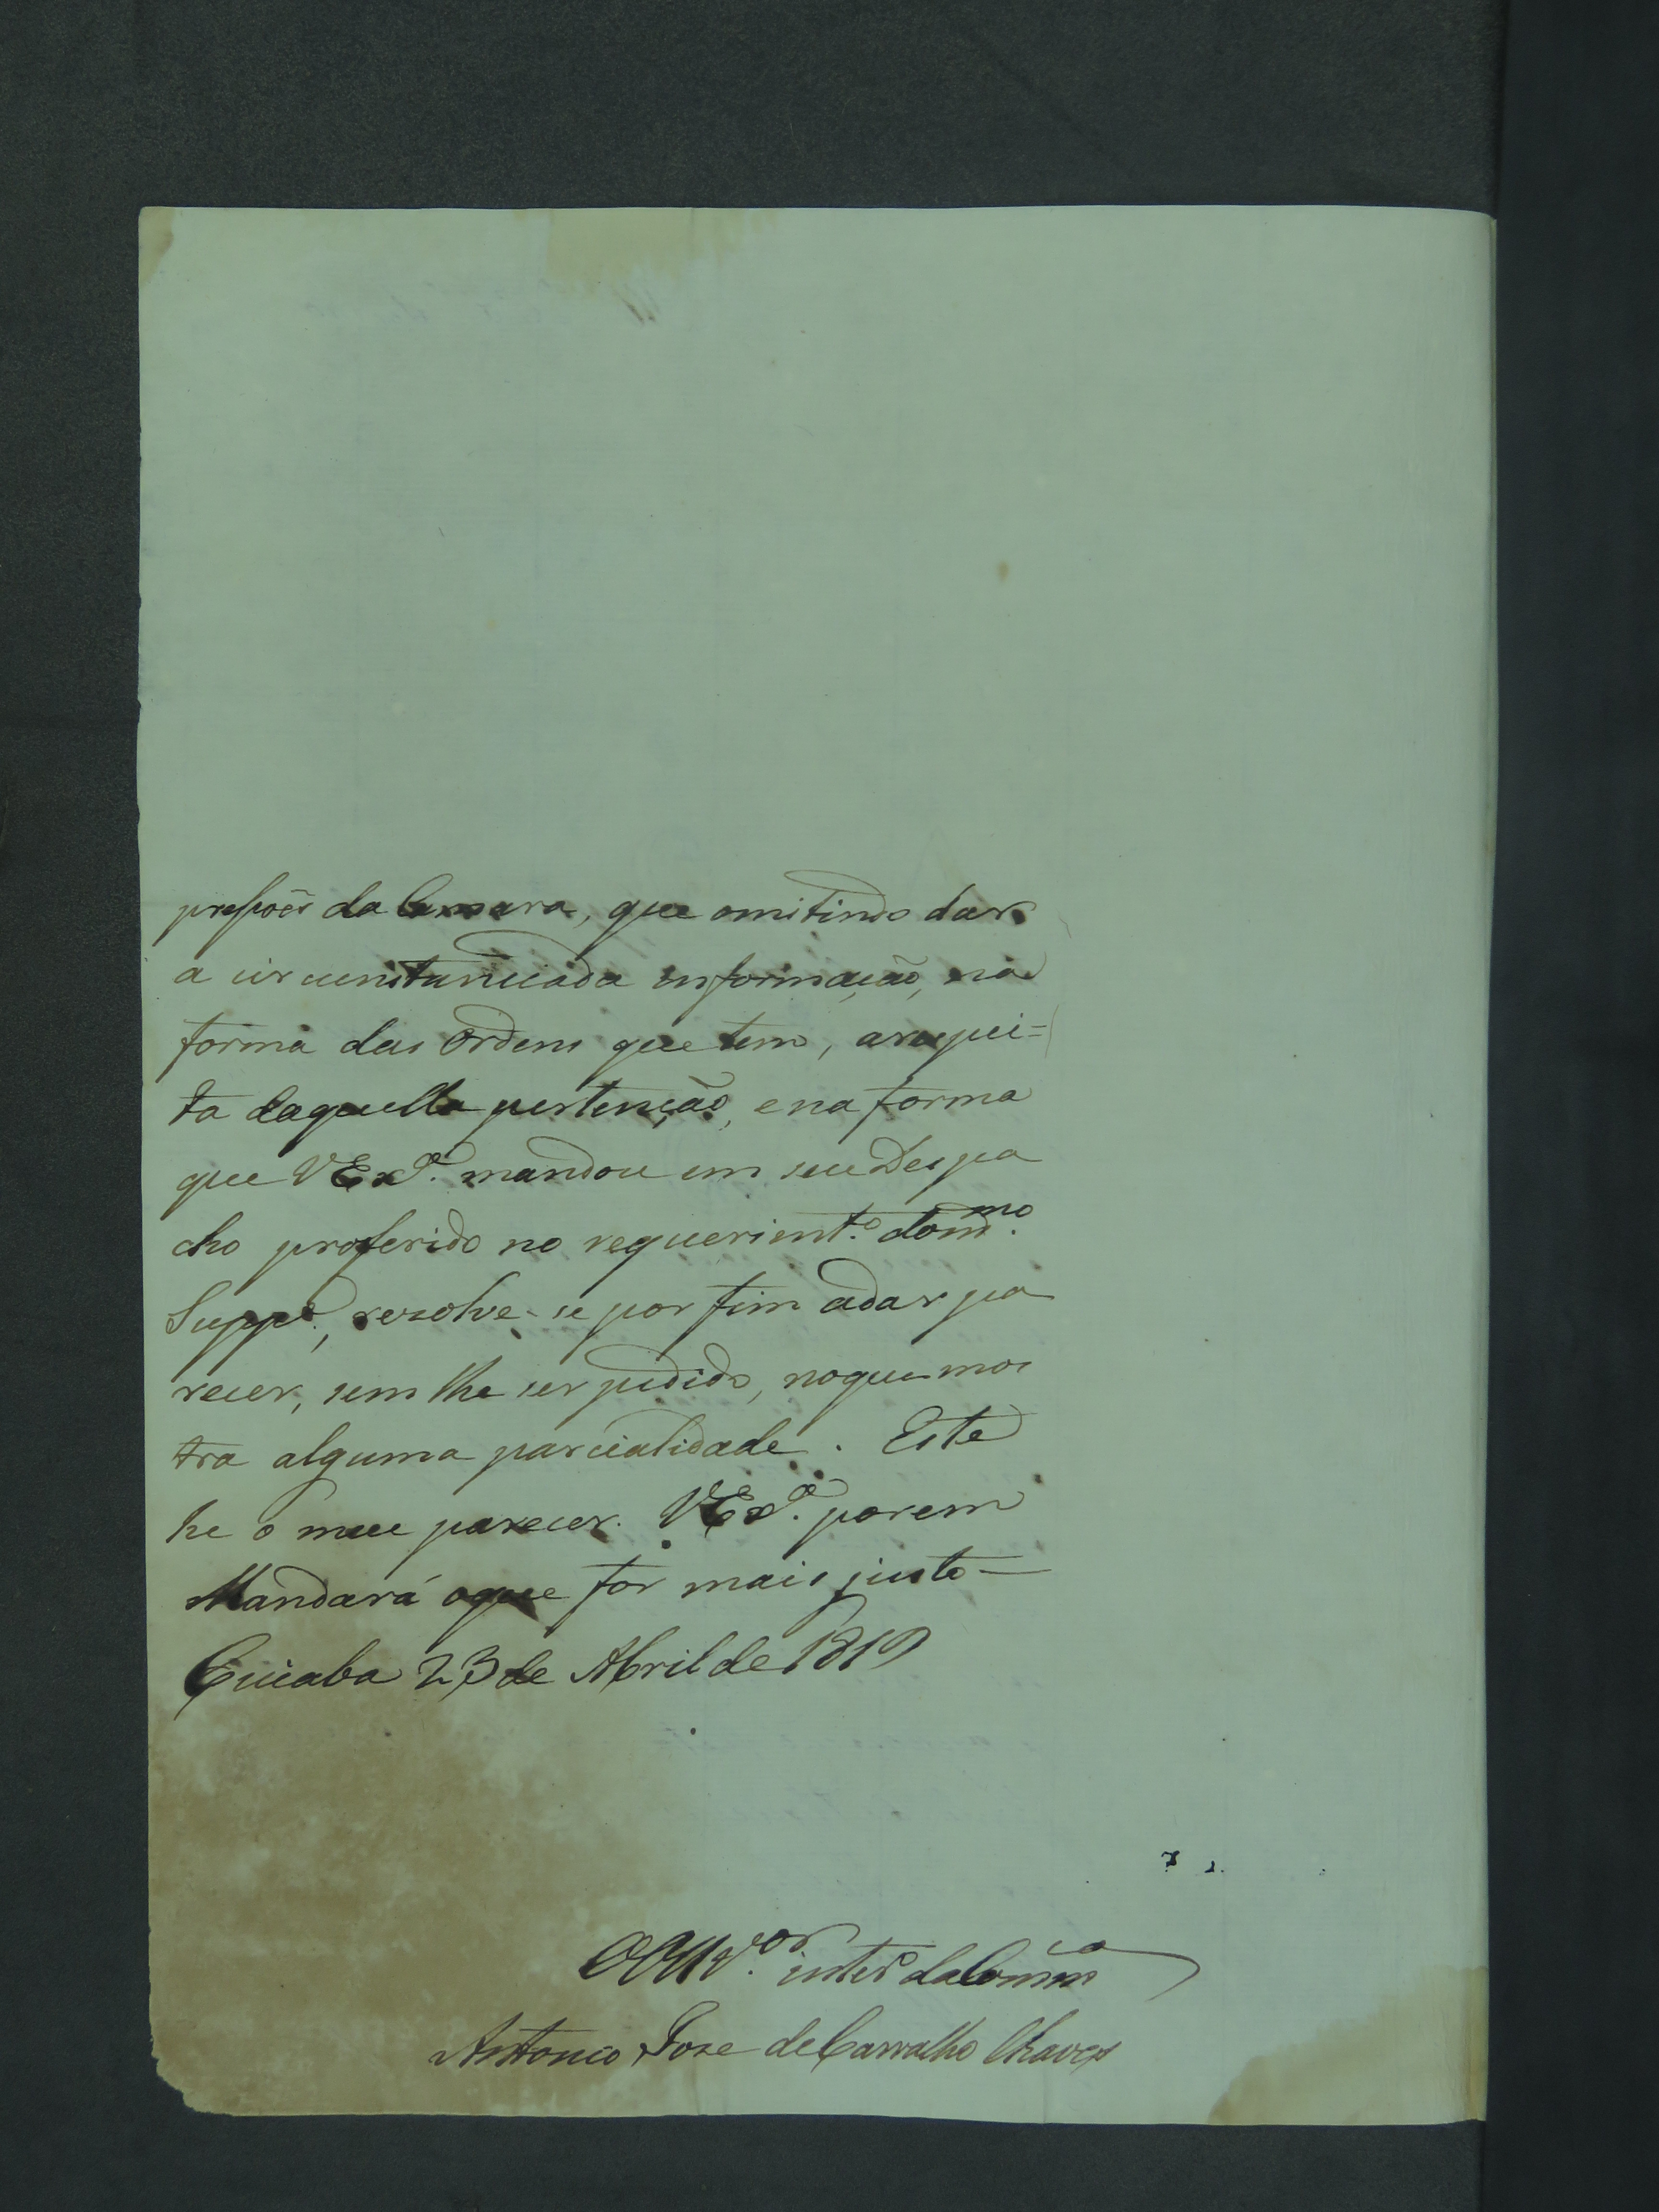 preſsoẽs da Camara, que omitindo dar
a circunstanciada informação, na
forma das Ordens que tem, arespei=
ta daquella pertenção, e na forma
que VEx.ª mandou em seu Despa
cho proferido no requerimt.º dom.mo
Supp.e, resolve-se por fim adar pa
recer, sem lhe ser pedido, noque mos
tra alguma parcialidade. Este
he o meu parecer. VEx.ª porem
Mandará oque for mais justo—
Cuiaba 23 de Abril de 1819
O Ouv.or inter.º da Com.ca
Antonio Jose de Carvalho Chaves